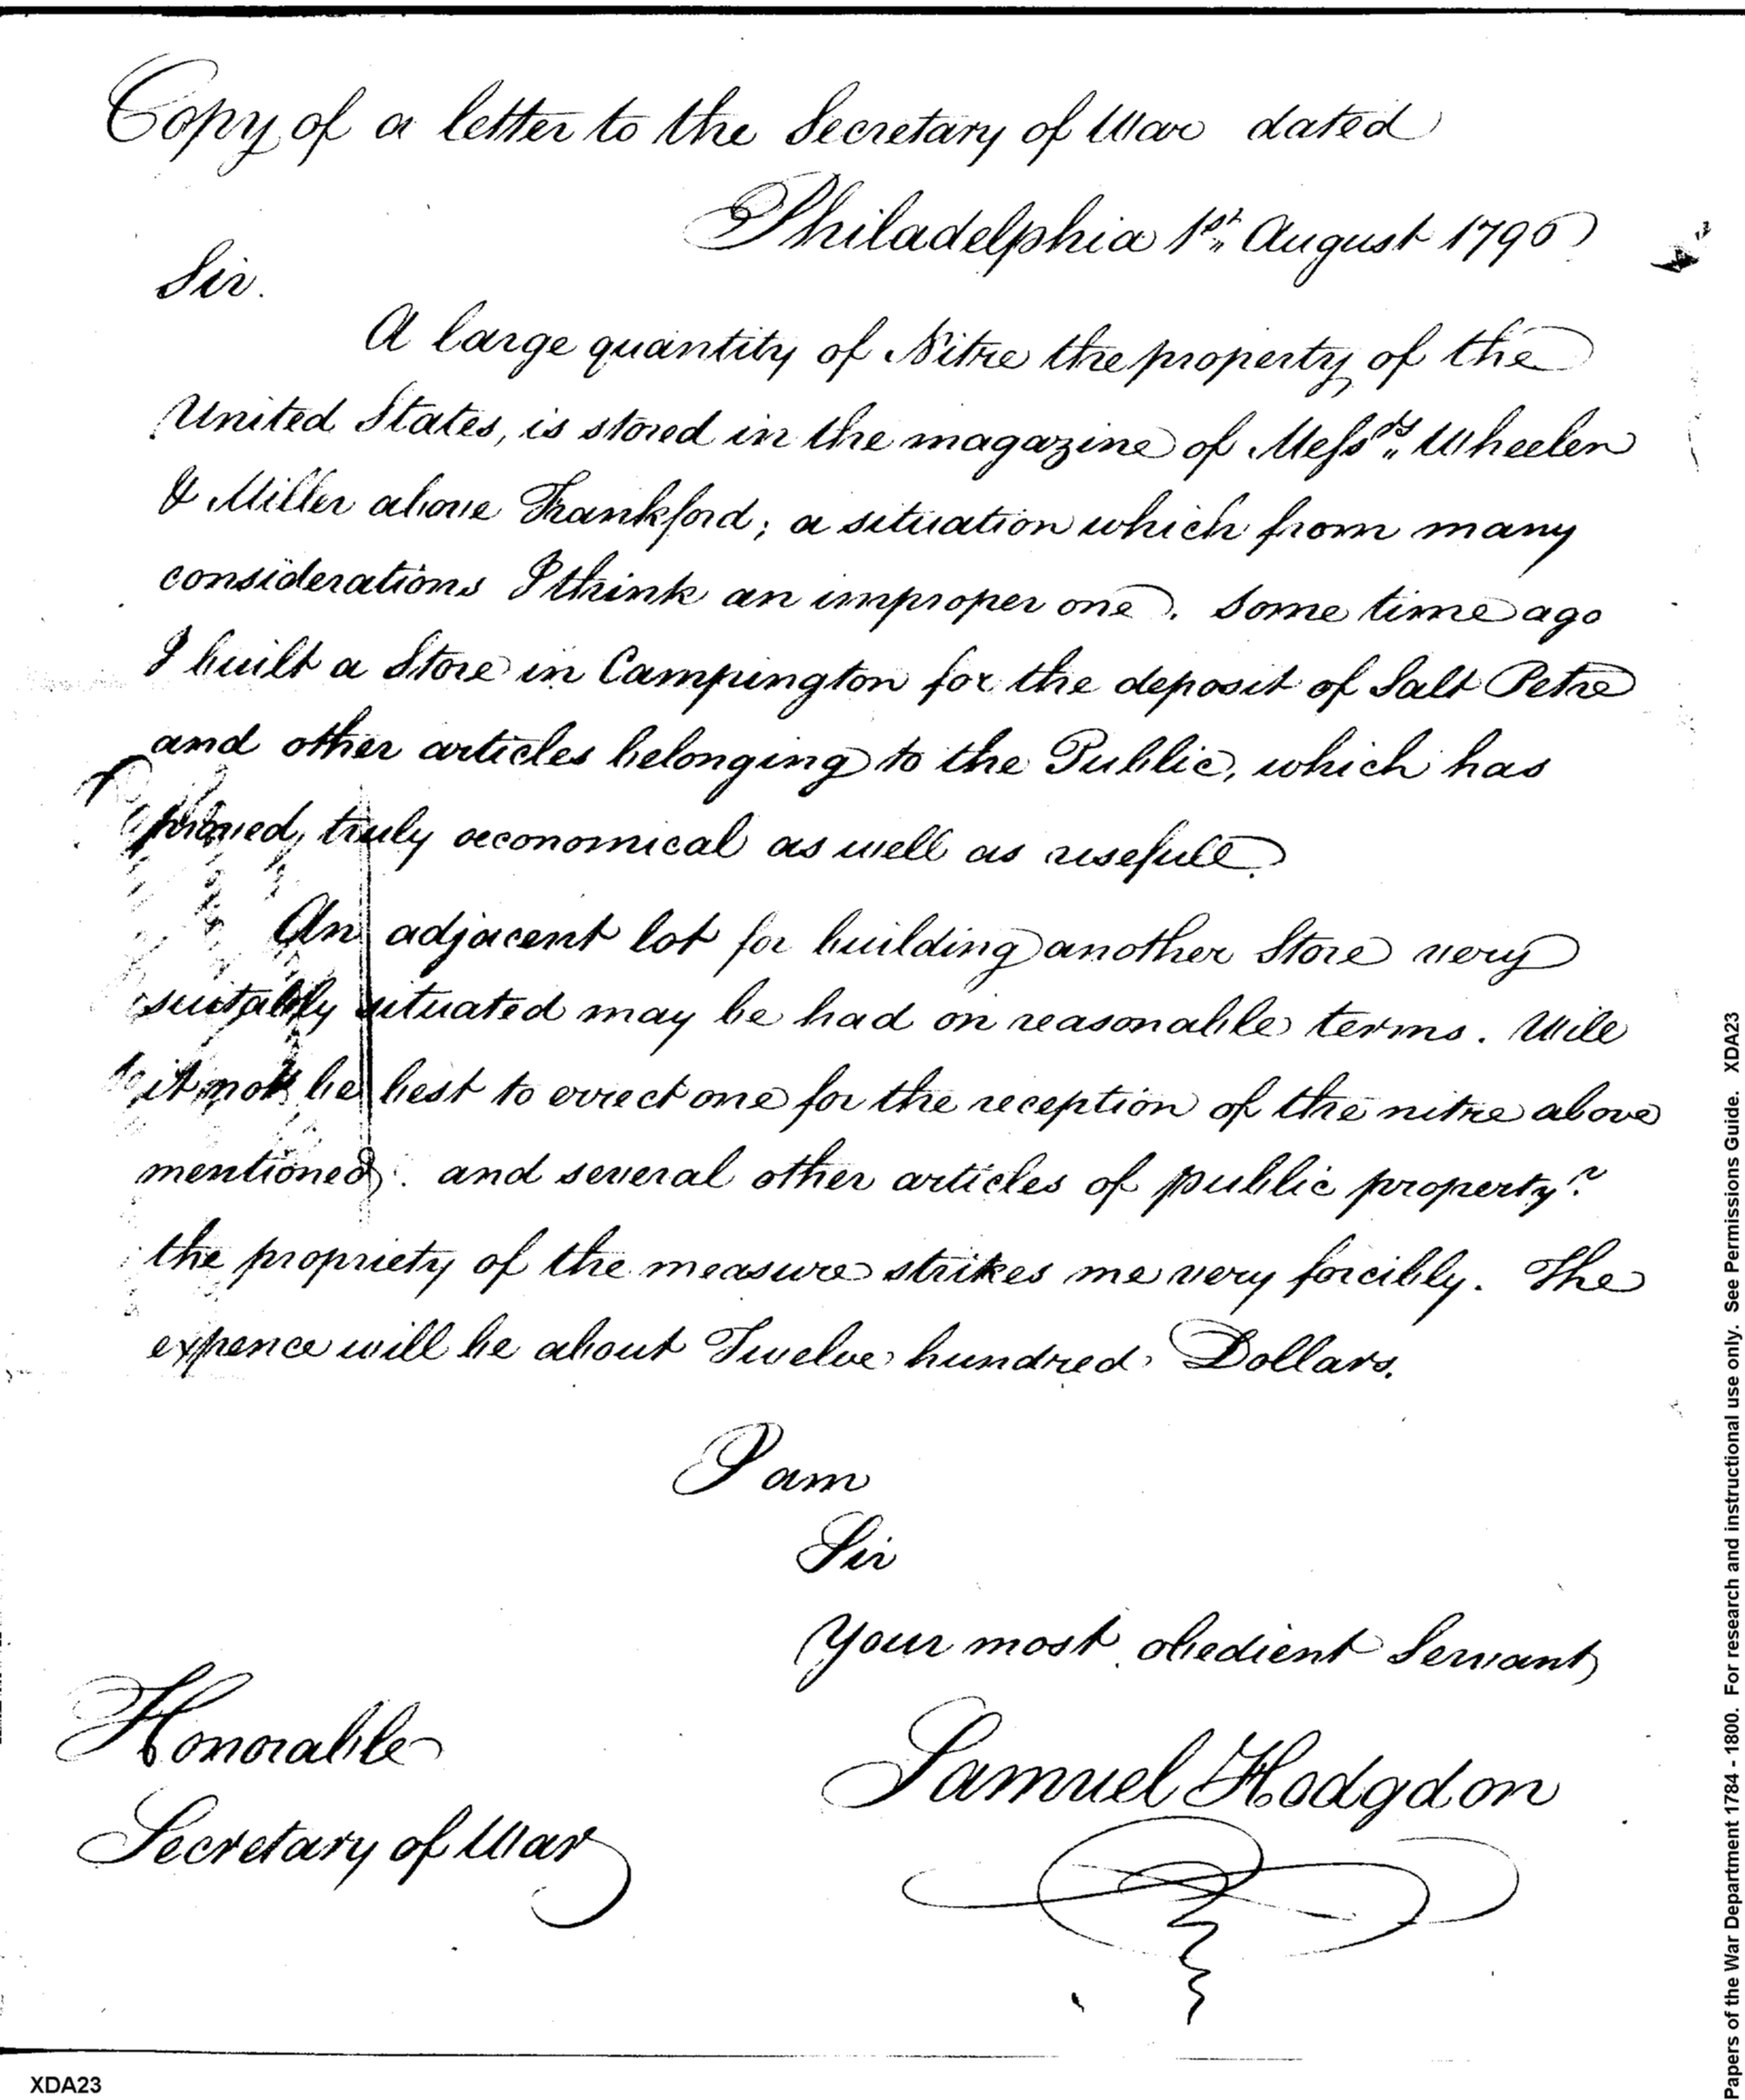 Copy of a letter to the Secretary of War dated
Philadelphia 1st" August 1796
Sir.
A large quantity of Nitre the property of the
United States, is stored in the magazine of Messrs" Wheelen
& Miller above Frankford; a situation which from many
considerations I think an improper one. Some time ago
I built a Store in Campington for the deposit of Salt Petre
and other articles belonging to the Public, which has
proved, truly oeconomical as well as usefull.
An adjacent lot for building another Store very
suitably situated may be had on reasonable terms. Will
it not be best to errect one for the reception of the nitre above
mentioned. and several other articles of public property?
the propriety of the measure strikes me very forcibly. The
expence will be about Twelve hundred Dollars.
I am
Sir
Your most obedient Servant
Samuel Hodgdon
Honorable
Secretary of War
XDA23
Papers of the War Department 1784 - 1800. For research and instructional use only. See Permissions Guide. XDA23